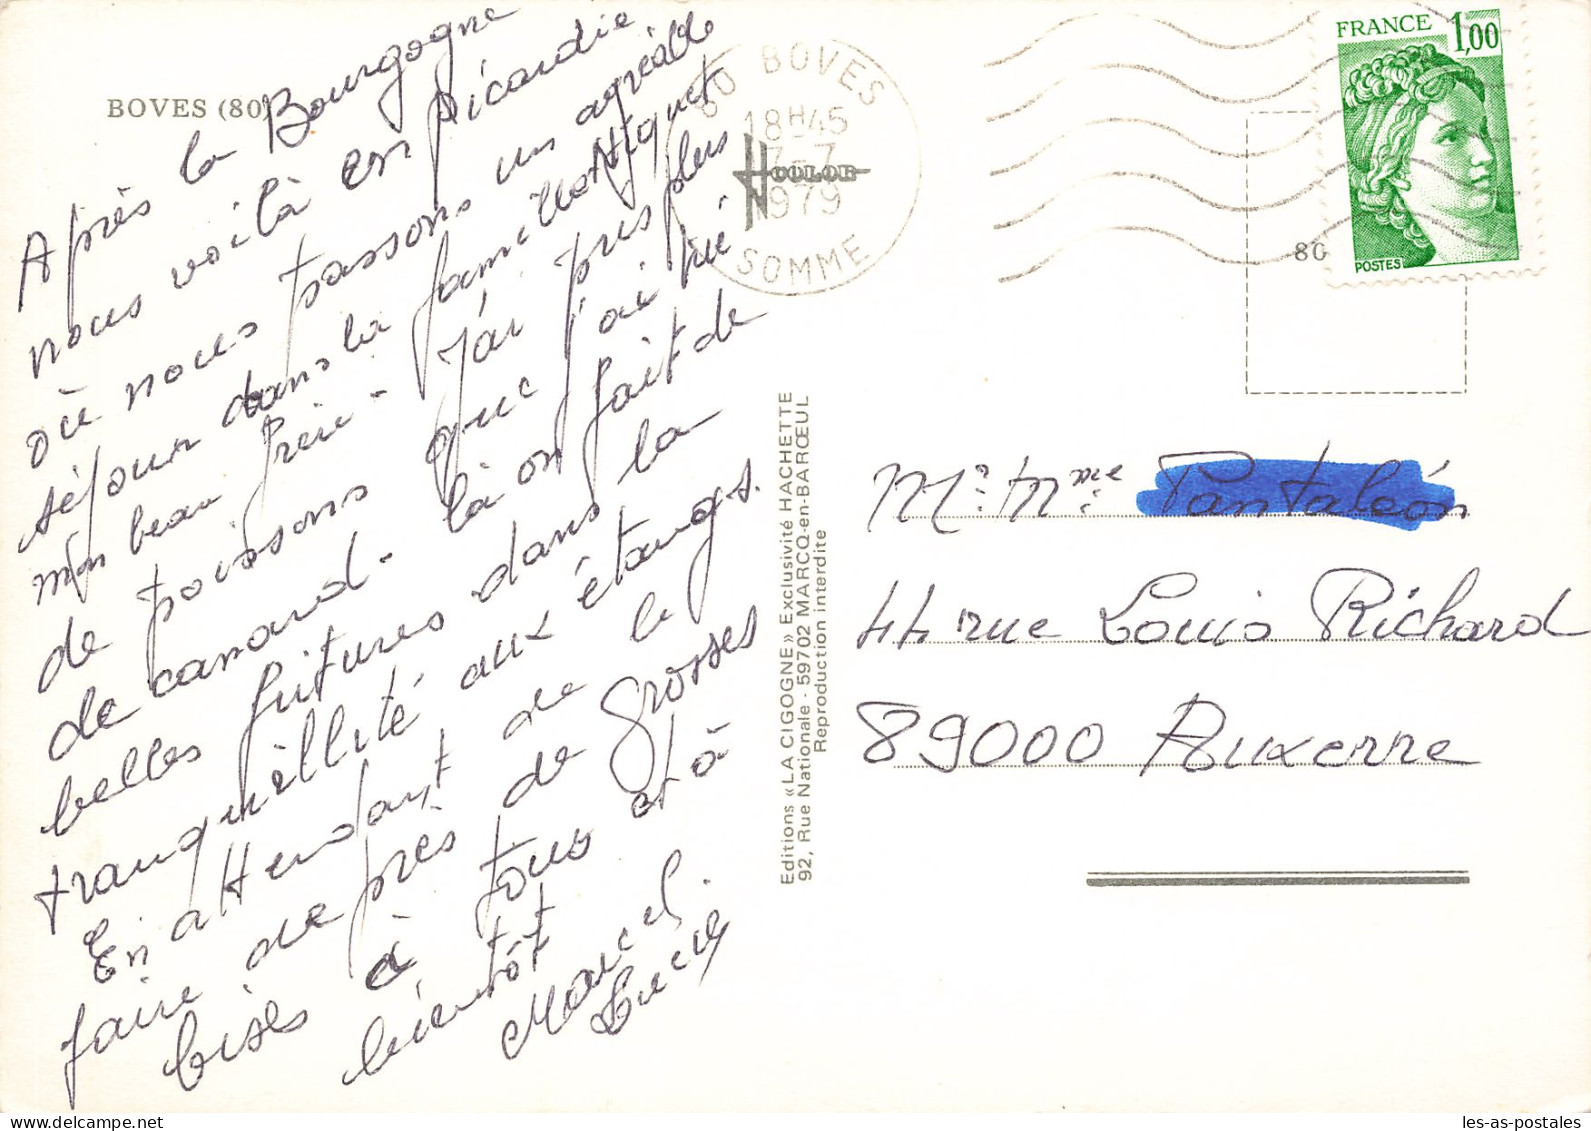 BOVES (80)
Après la Bourgogne
nous voilà en Picardie
où nous passons un agréable
séjour dans la famille
mon beau frère - J'ai pris plus
de poissons que j'ai tué
de canard. là on fait de
belles fritures dans la
tranquillité aux étangs.
En attendant de le
faire de près de grosses
bises à tous et à
bientôt
Marcel
Lucie
80 BOVES
18H45
7-7
1979
SOMME
COLOR
FRANCE 1,00
POSTES
80
Editions «LA CIGOGNE» Exclusivité HACHETTE
92, Rue Nationale - 59702 MARCQ-en-BARŒUL
Reproduction interdite
Mr. Mme Pantaléon
44 rue Louis Richard
89000 Auxerre
les-as-postales